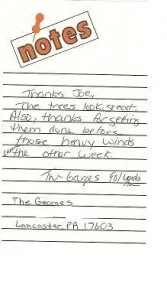 notes
Thanks Joe,
The trees look great.
Also, thanks for getting
them done before
those heavy winds
the other week.
The
The Geornes
Lancaster PA 17603